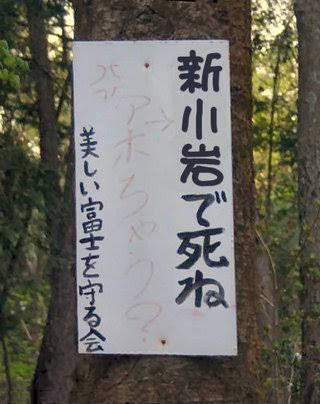 新小岩で死ね
→アホちゃう?
美しい富士を守る会